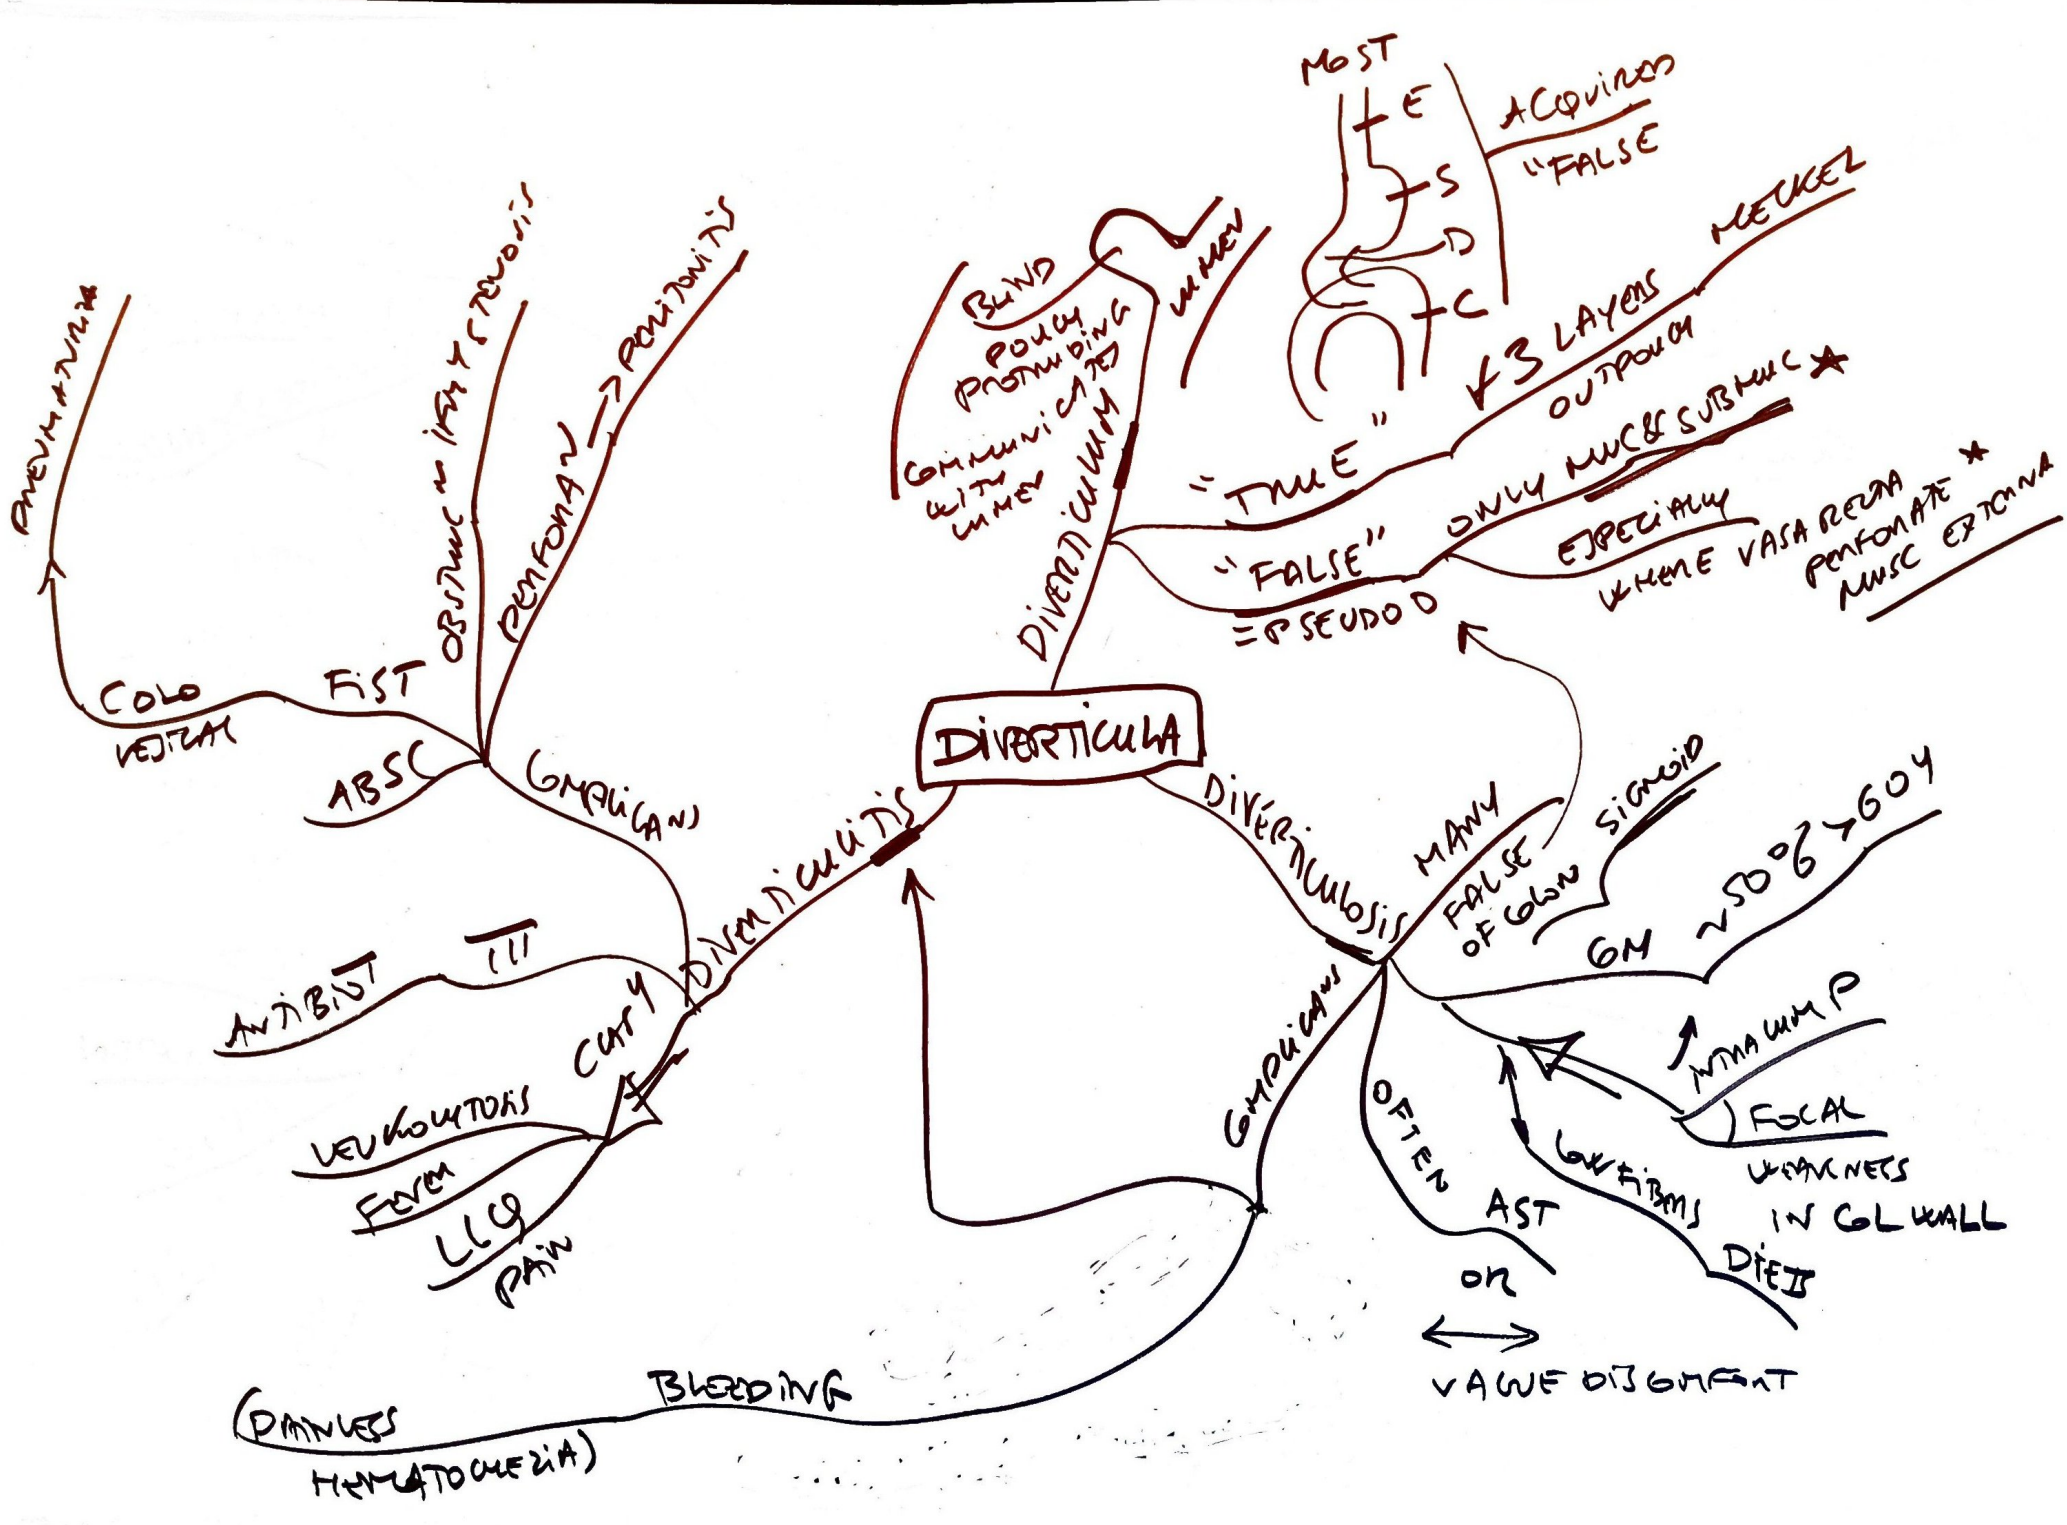 DIVERTICULA
DIVERTICULUM
BLIND
POUCH
PROTRUDING
COMMUNICATED
WITH
LUMEN
LUMEN
MOST
E
S
D
C
ACQUIRED
"FALSE
"TRUE"
3 LAYERS
OUTPOUCH
MECKEL
"FALSE"
=PSEUDO D
ONLY MUC & SUBMUC
ESPECIALLY
WHERE VASA RECTA
PERFORATE
MUSC EXTERNA
DIVERTICULOSIS
MANY
FALSE
OF COLON
SIGMOID
COM
~50% >60Y
INTRALUM P
FOCAL
WEAKNESS
IN COL WALL
LOW FIBERS
DIET
OFTEN
AST
OR
VAGUE DISCOMFORT
COMPLICANS
BLEEDING
(PAINLESS
HEMATOCHEZIA)
DIVERTICULITIS
COMPLICANS
PERFORAN → PERITONITIS
OBSTRUC
STENOSIS
FIST
COLO
VESICAL
PNEUMATURIA
ABSC
ANTIBIOT
CLAPY
LEUKOCYTOSIS
FEVER
LLQ
PAIN